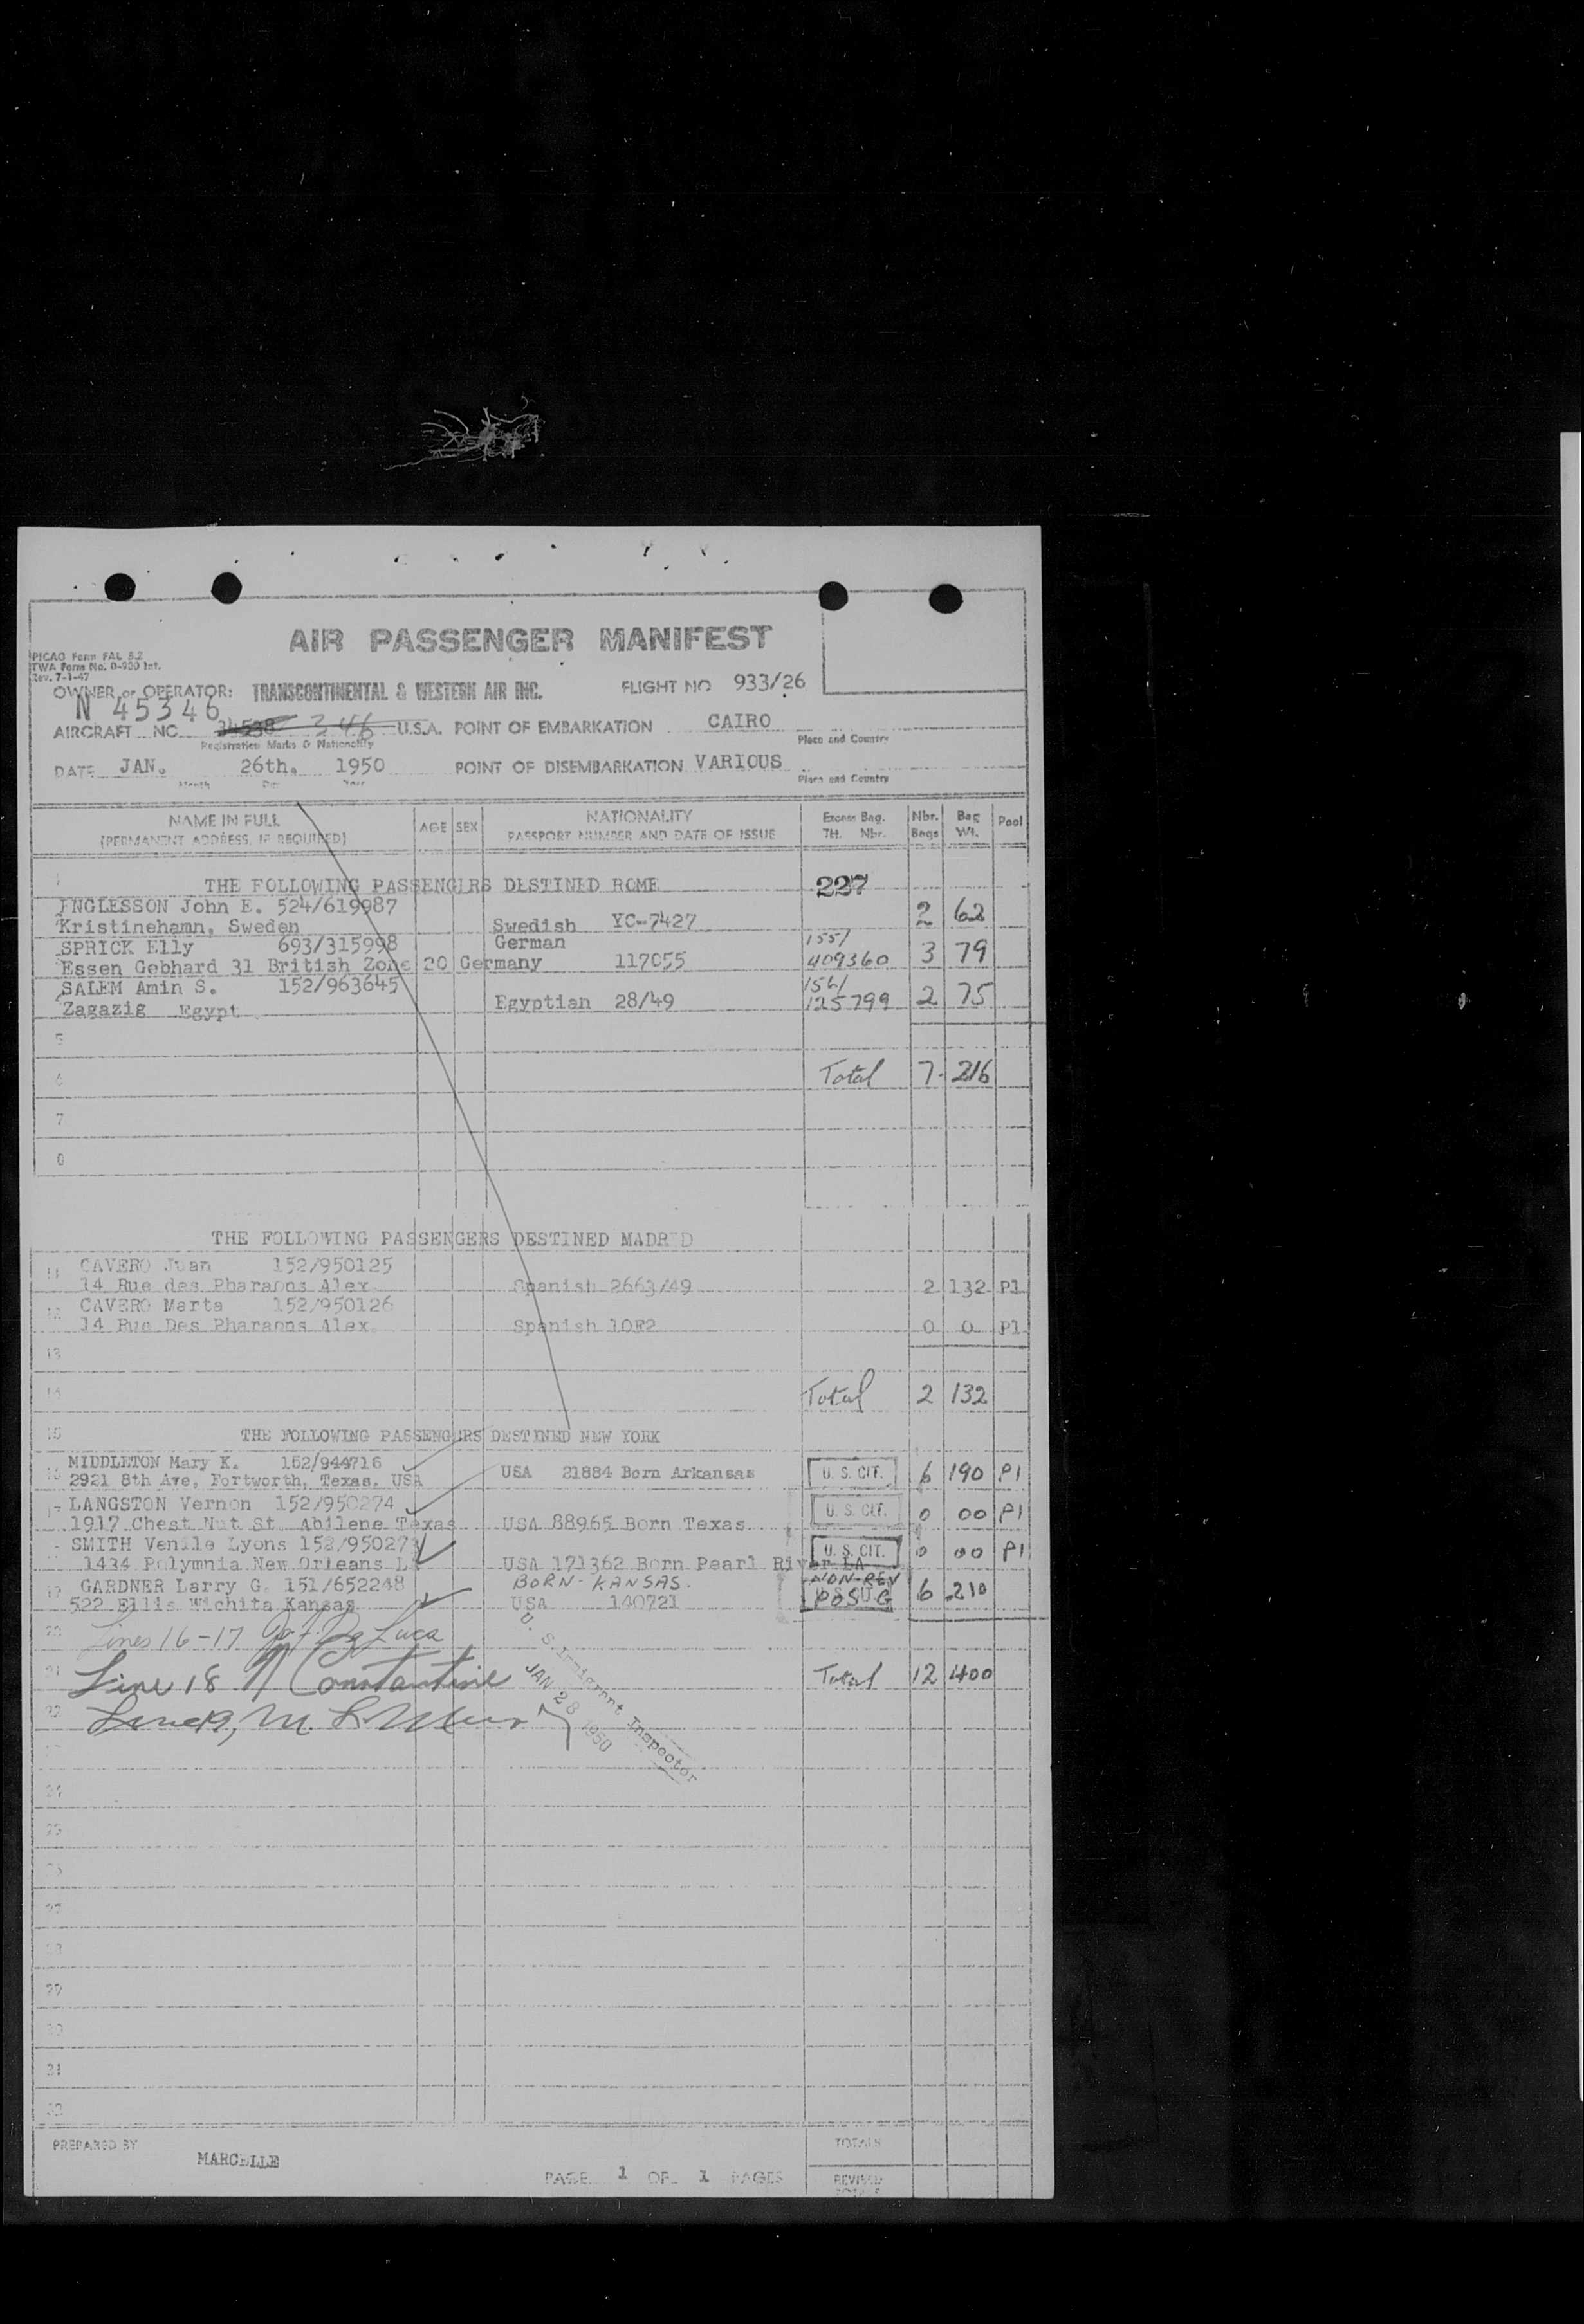 AIR PASSENGER MANIFEST
PICAO Form FAL 5.2
TWA Form No. 0-930 Int.
Rev. 7-1-47
OWNER or OPERATOR: TRANSCONTINENTAL & WESTERN AIR INC. FLIGHT NO 933/26
N 45346
AIRCRAFT NO. 346 U.S.A. POINT OF EMBARKATION CAIRO
Registration Marks & Nationality Place and Country
DATE JAN. 26th. 1950 POINT OF DISEMBARKATION VARIOUS
Month Day Year Place and Country
NAME IN FULL AGE SEX NATIONALITY Excess Bag. Nbr. Bag Pool
(PERMANENT ADDRESS, IF REQUIRED) PASSPORT NUMBER AND DATE OF ISSUE Tkt. Nbr. Bags Wt.
THE FOLLOWING PASSENGERS DESTINED ROME 227
INGLESSON John E. 524/619987 2 62
Kristinehamn, Sweden Swedish YC-7427
SPRICK Elly 693/315998 German 155/
Essen Gebhard 31 British Zone 20 Germany 117055 409360 3 79
SALEM Amin S. 152/963645 156/
Zagazig Egypt Egyptian 28/49 125799 2 75
5
6 Total 7 216
7
8
THE FOLLOWING PASSENGERS DESTINED MADRID
11 CAVERO Juan 152/950125
14 Rue des Pharaons Alex. Spanish 2663/49 2 132 P1
12 CAVERO Marta 152/950126
14 Rue Des Pharaons Alex. Spanish 10E2 0 0 P1
13
14 Total 2 132
15 THE FOLLOWING PASSENGERS DESTINED NEW YORK
16 MIDDLETON Mary K. 152/944716
2921 8th Ave, Fortworth, Texas. USA USA 21884 Born Arkansas U. S. CIT. 6 190 P1
17 LANGSTON Vernon 152/950274
1917 Chest Nut St Abilene Texas USA 88965 Born Texas U. S. CIT. 0 00 P1
SMITH Venile Lyons 152/950273
1434 Polymnia New Orleans LA USA 171362 Born Pearl River LA U. S. CIT. 0 00 P1
19 GARDNER Larry G. 151/652248 BORN- KANSAS. NON-REV
522 Ellis Wichita Kansas USA 140721 POSUG 6 210
20 Lines 16-17 De Luca
21 Line 18 N Constantine Total 12 400
22
U. S. Immigrant Inspector
JAN 28 1950
24
25
26
27
28
29
30
31
32
PREPARED BY MARCELLE TOTALS
PAGE 1 OF 1 PAGES REVISED TOTALS